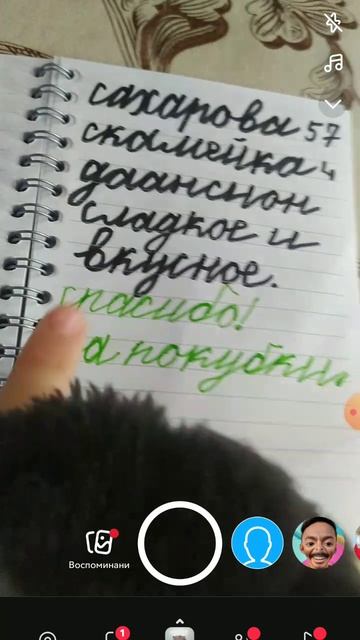 сахарова 57
скамейка 4
сладкое и
вкусное.
спасибо!
а покубкии
Воспоминани
1